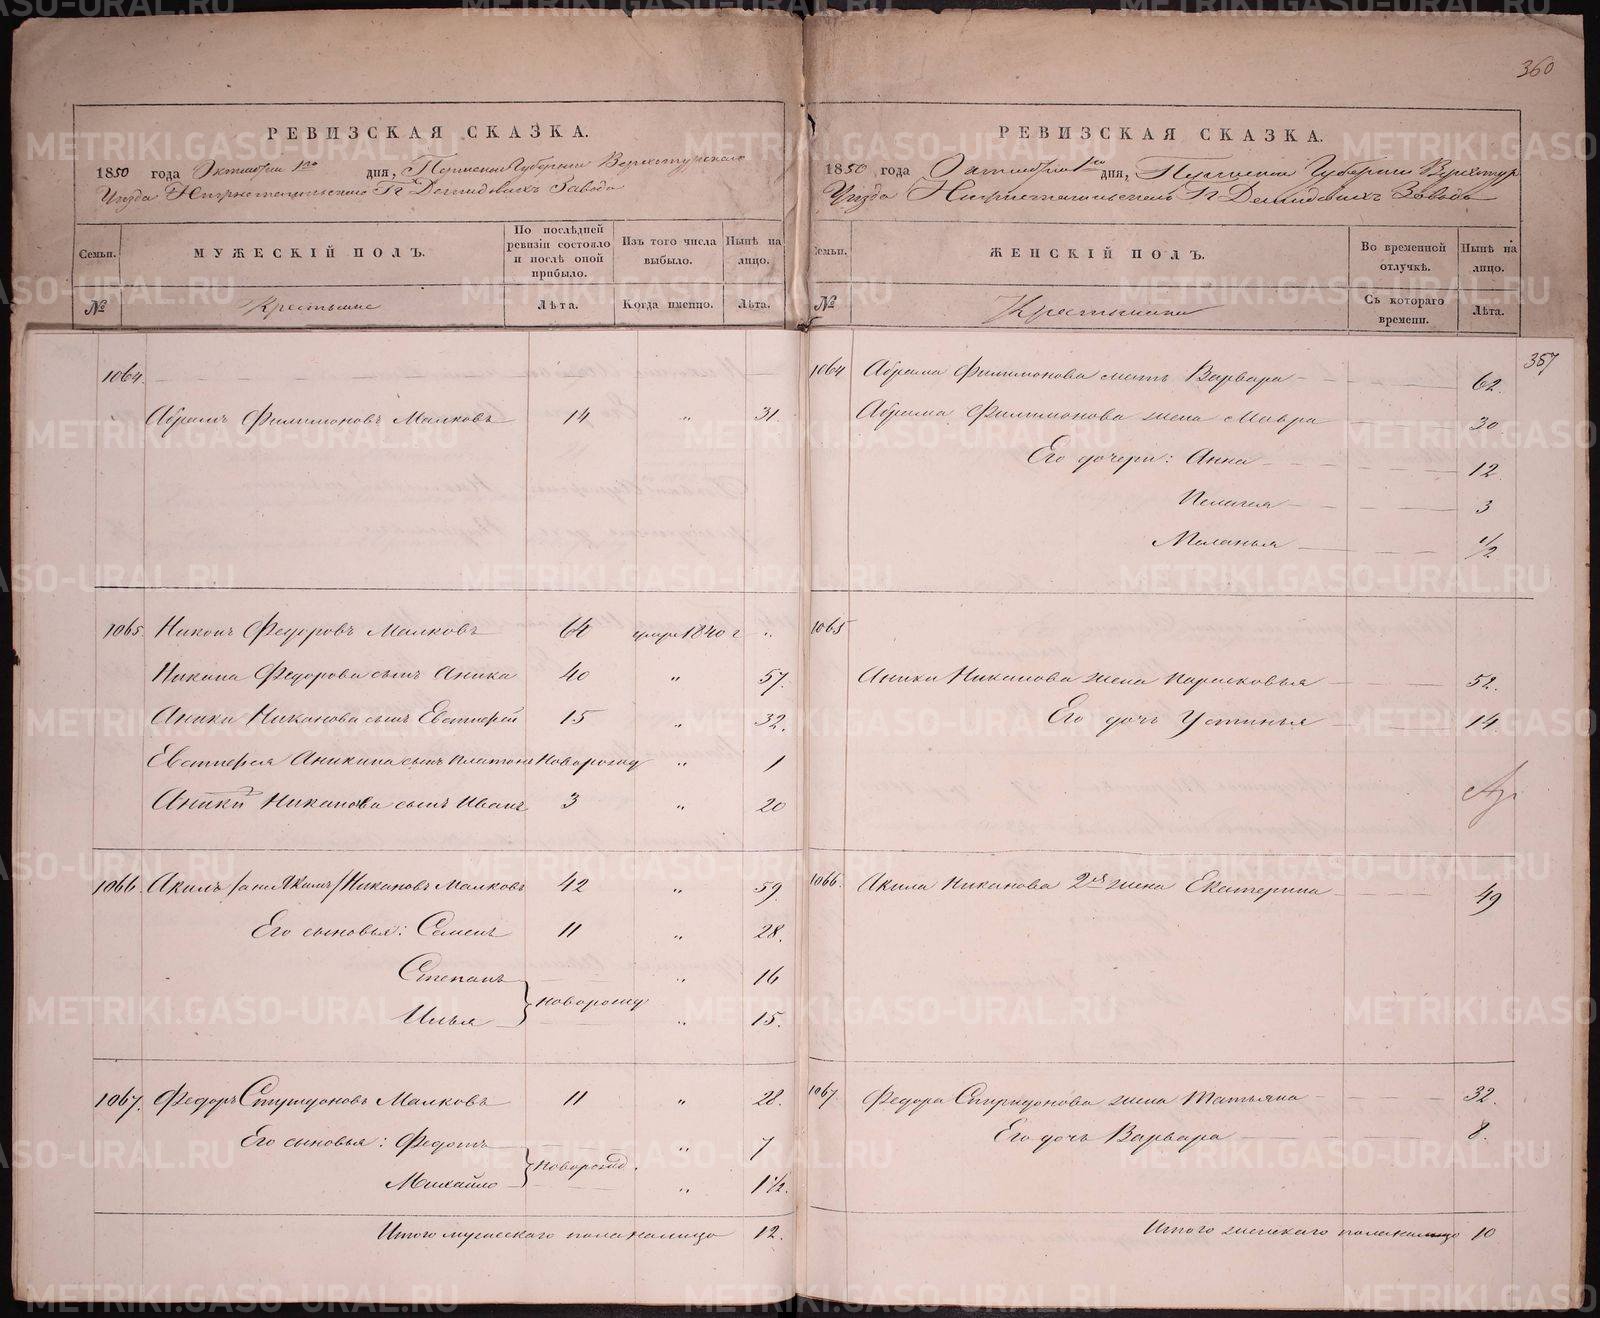 360
РЕВИЗСКАЯ СКАЗКА.
1850 года Октября 1го дня, Пермской Губернии Верхотурскаго
Уезда Нижнетагильскаго Гг Демидовыхъ Завода
Семьи.
МУЖЕСКІЙ ПОЛЪ.
По послѣдней ревизіи состояло и послѣ оной прибыло.
Изъ того числа выбыло.
Нынѣ на лицо.
№
Крестьяне
Лѣта.
Когда именно.
Лѣта.
1064.
Абрамъ Филимоновъ Малковъ 14 " 31.
1065. Никонъ Федоровъ Малковъ 64 умре 1840 г "
Никона Федорова сынъ Аника 40 " 57.
Аники Никонова сынъ Евстифей 15 " 32.
Евстифея Аникина сынъ Платонъ Новорожд " 1
Аники Никонова сынъ Иванъ 3 " 20
1066. Акилъ /аки Акимъ/ Никоновъ Малковъ 42 " 59.
Его сыновья: Семенъ 11 " 28.
Степанъ " 16
новорожд
Илья " 15.
1067. Федоръ Спиридоновъ Малковъ 11 " 28.
Его сыновья: Федотъ " 7
новорожд.
Михайло " 1 1/2.
Итого мужескаго пола налицо 12.
РЕВИЗСКАЯ СКАЗКА.
1850 года Октября 1го дня, Пермской Губернии Верхотур
Уезда Нижнетагильскаго Гг Демидовыхъ Завода
Семьи.
ЖЕНСКІЙ ПОЛЪ.
Во временной отлучкѣ.
Нынѣ на лицо.
№
Крестьянки
Съ котораго времени.
Лѣта.
357
1064 Абрама Филимонова мать Варвара 62.
Абрама Филимонова жена Мавра 30.
Его дочери: Анна 12.
Пелагея 3
Меланья 1/2
1065
Аники Никонова жена Парасковья 52.
Его дочь Устинья 14.
1066. Акила Никонова 2я жена Екатерина 49
1067. Федора Спиридонова жена Татьяна 32.
Его дочь Варвара 8.
Итого женскаго пола налицо 10
METRIKI.GASO-URAL.RU